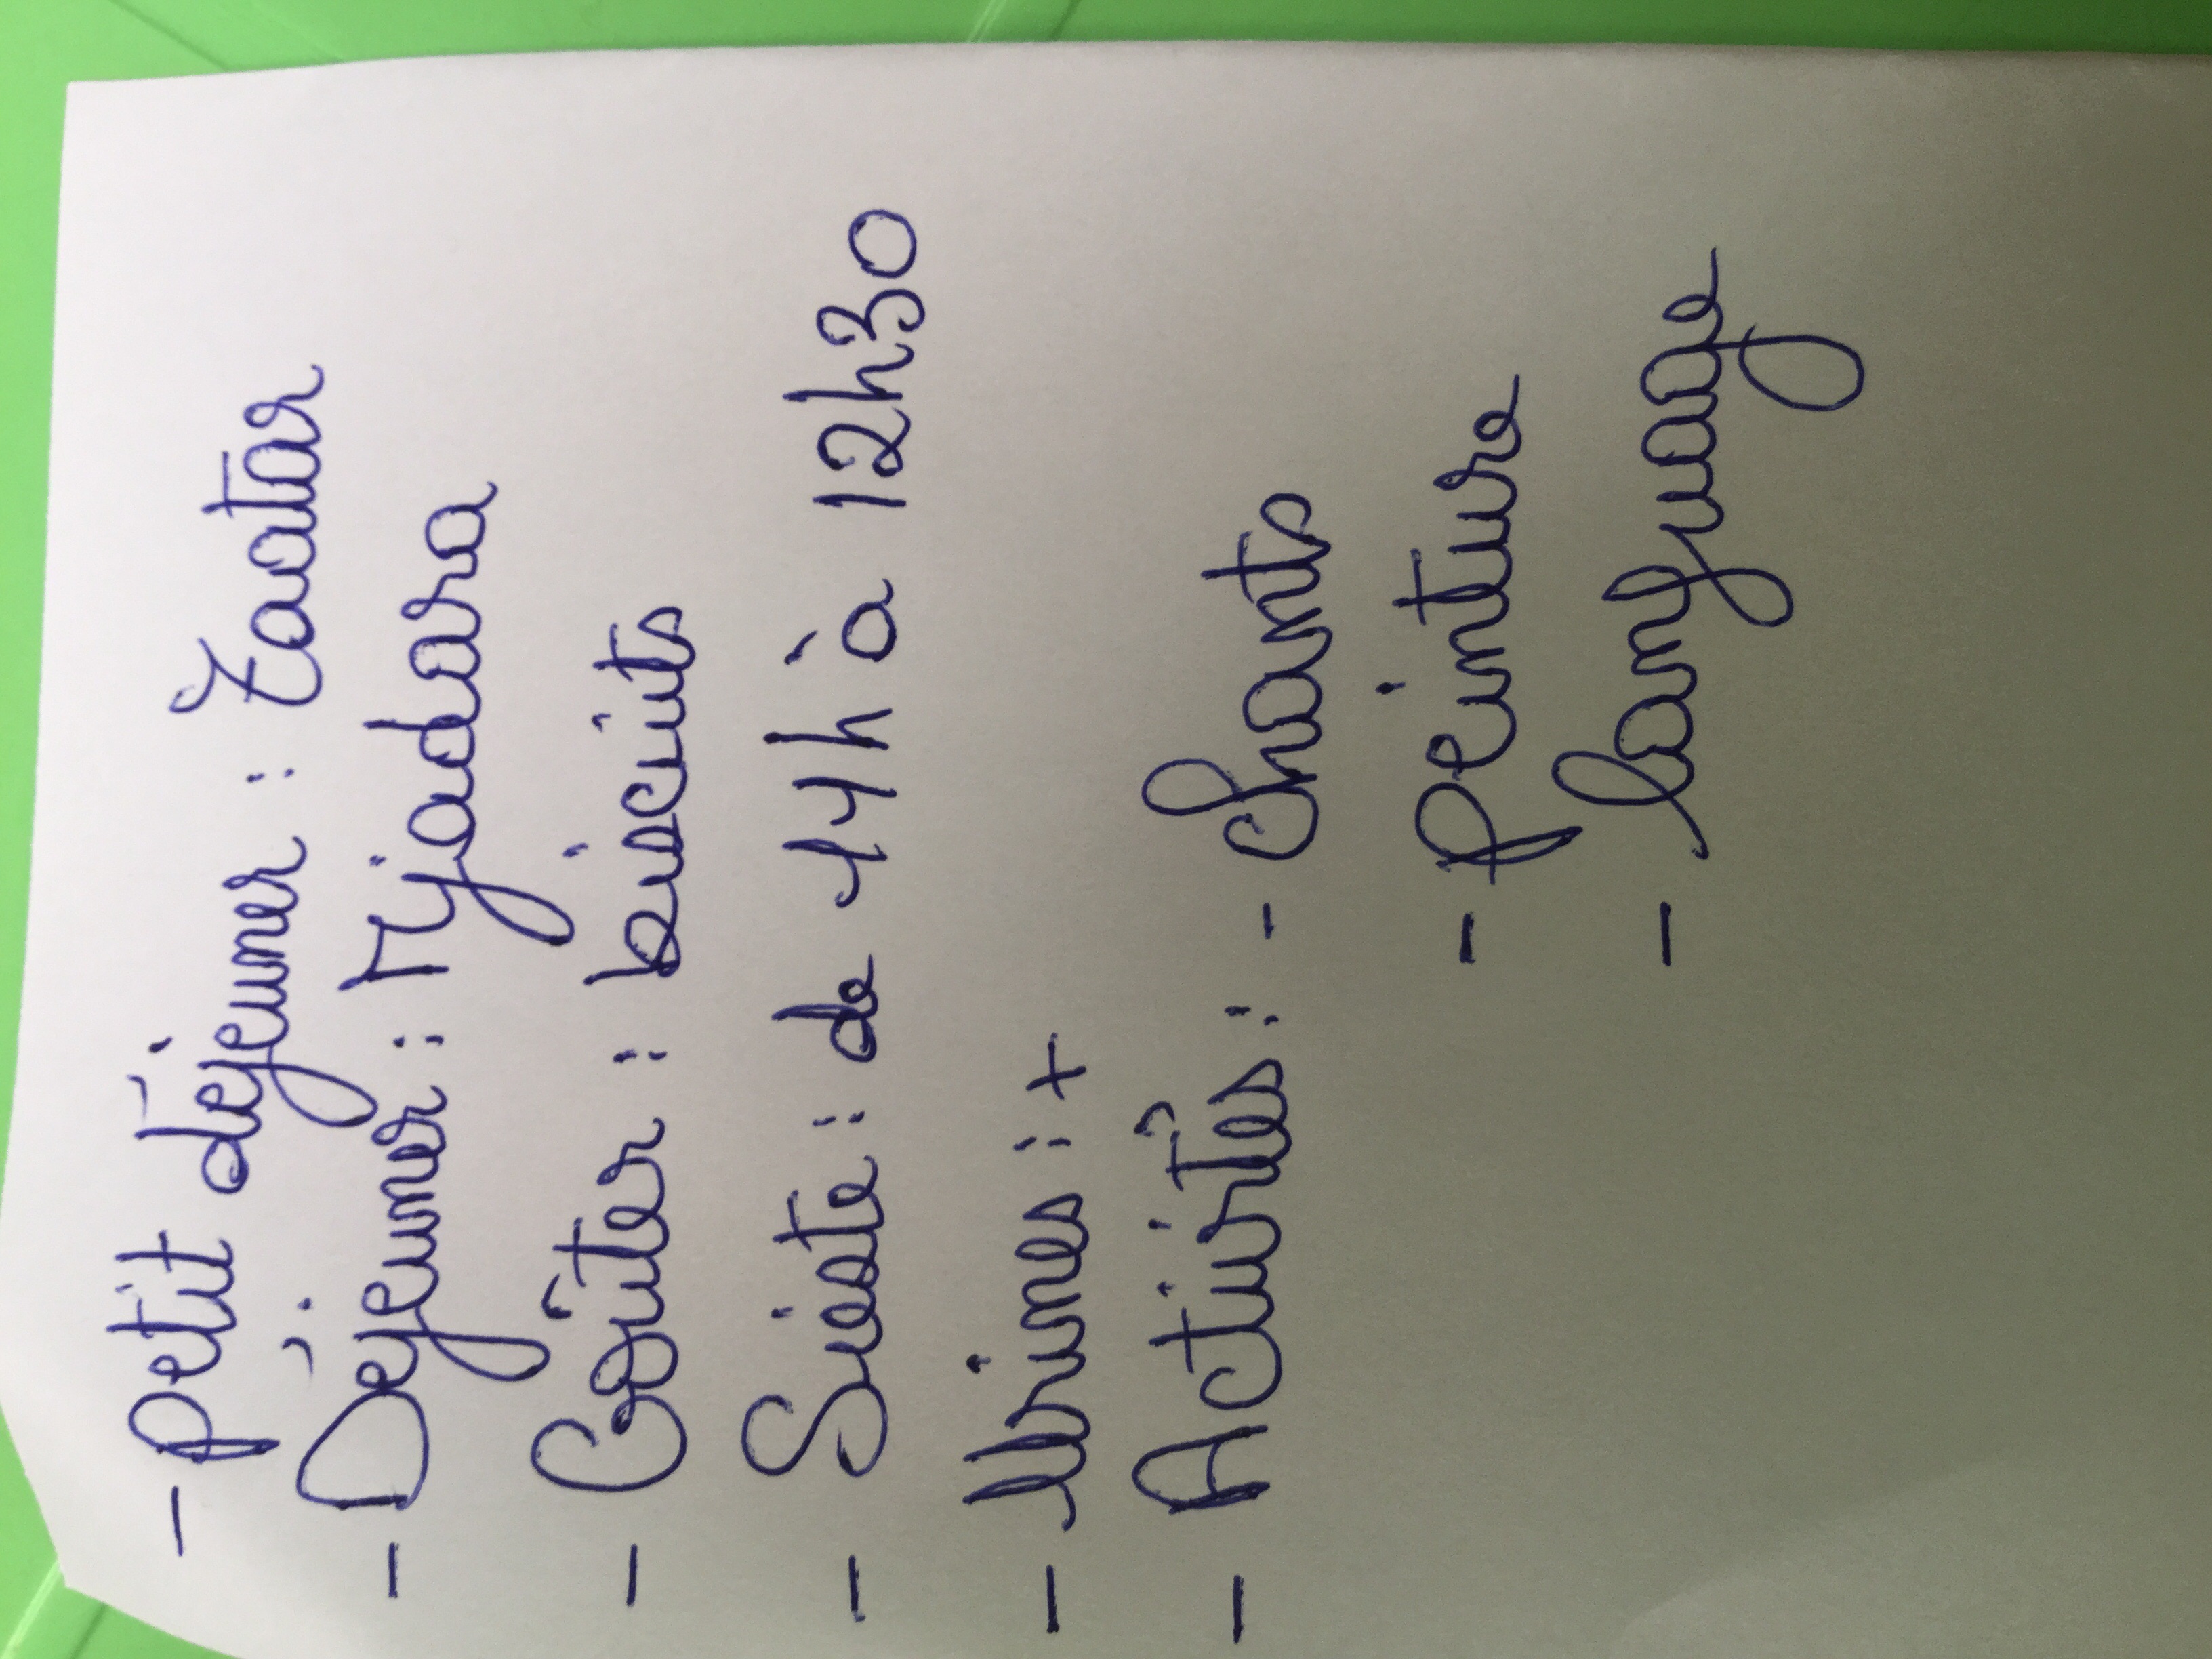 - petit déjeuner : Zaatar
- Déjeuner : Mjadara
- Goûter : biscuits
- Sieste : de 11h à 12h30
- Urines : +
- Activités : - chants
- peinture
- language